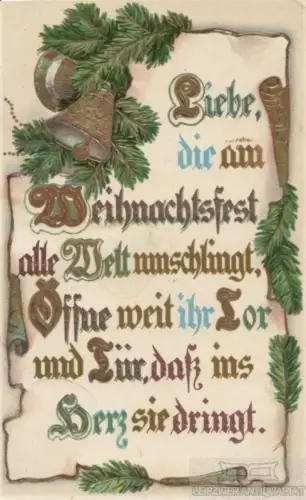 Liebe,
die am
Weihnachtsfest
alle Welt umschlingt,
Öffne weit ihr Tor
und Tür, daß ins
Herz sie dringt.
LEIPZIGER ANTIQUARIAT